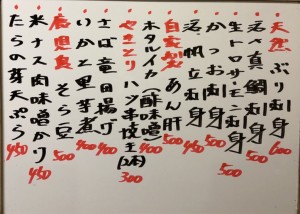 天然 ぶり刺身 600
活〆真鯛刺身 500
生トロサーモン刺身 500
かつお刺身 500
活帆立刺身 450
自家製 あん肝 500
ホタルイカ(酢味噌) 400
やきとり ハツ串技王(2本) 300
さば竜田揚げ 400
いかと里芋煮 400
鹿児島 そら豆 500
米ナス肉味噌かけ 450
たらの芽天ぷら 450